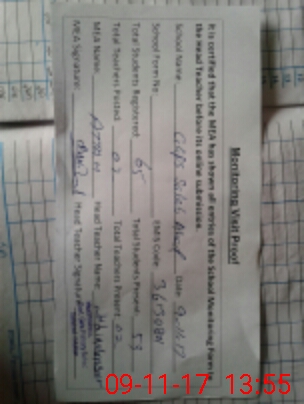 Monitoring Visit Proof
It is certified that the MEA has shown all entries of the School Monitoring Form to
the Head Teacher before its online submission.
School Name: GPS Date: 9-11-17
School Form No: EMIS Code:
Total Students Registered: 65 Total Students Present: 53
Total Teachers Posted: 02 Total Teachers Present: 02
MEA Name: Head Teacher Name:
MEA Signature: Head Teacher Signature
09-11-17 13:55